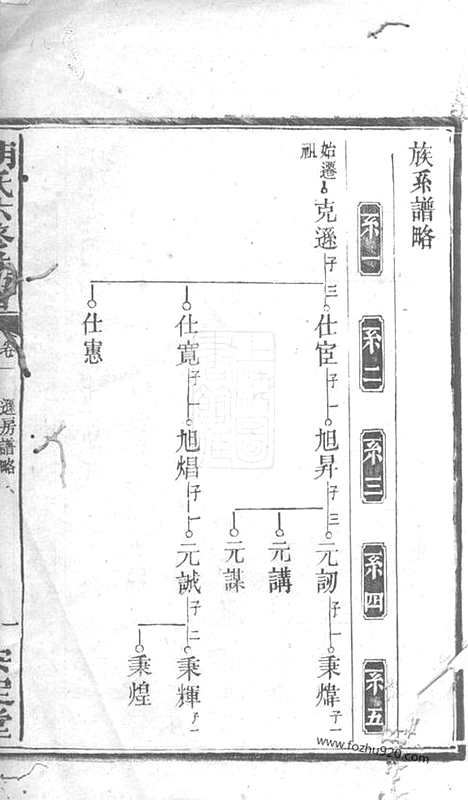 族系譜略
系一
系二
系三
系四
系五
始遷祖
克遜 子三
仕宦 子一
旭昇 子三
元訒 子一
秉煒 子一
元講
元謀
仕寬 子一
旭焻 子一
元誠 子二
秉輝 子一
秉煌
仕憲
氏六修
卷一
遜房譜略
一
堂
www.fozhu920.com